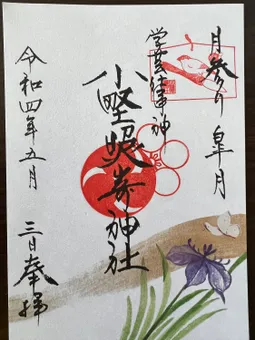 月参り 皐月
学芸結神
小野照崎神社
令和四年五月 三日奉拝